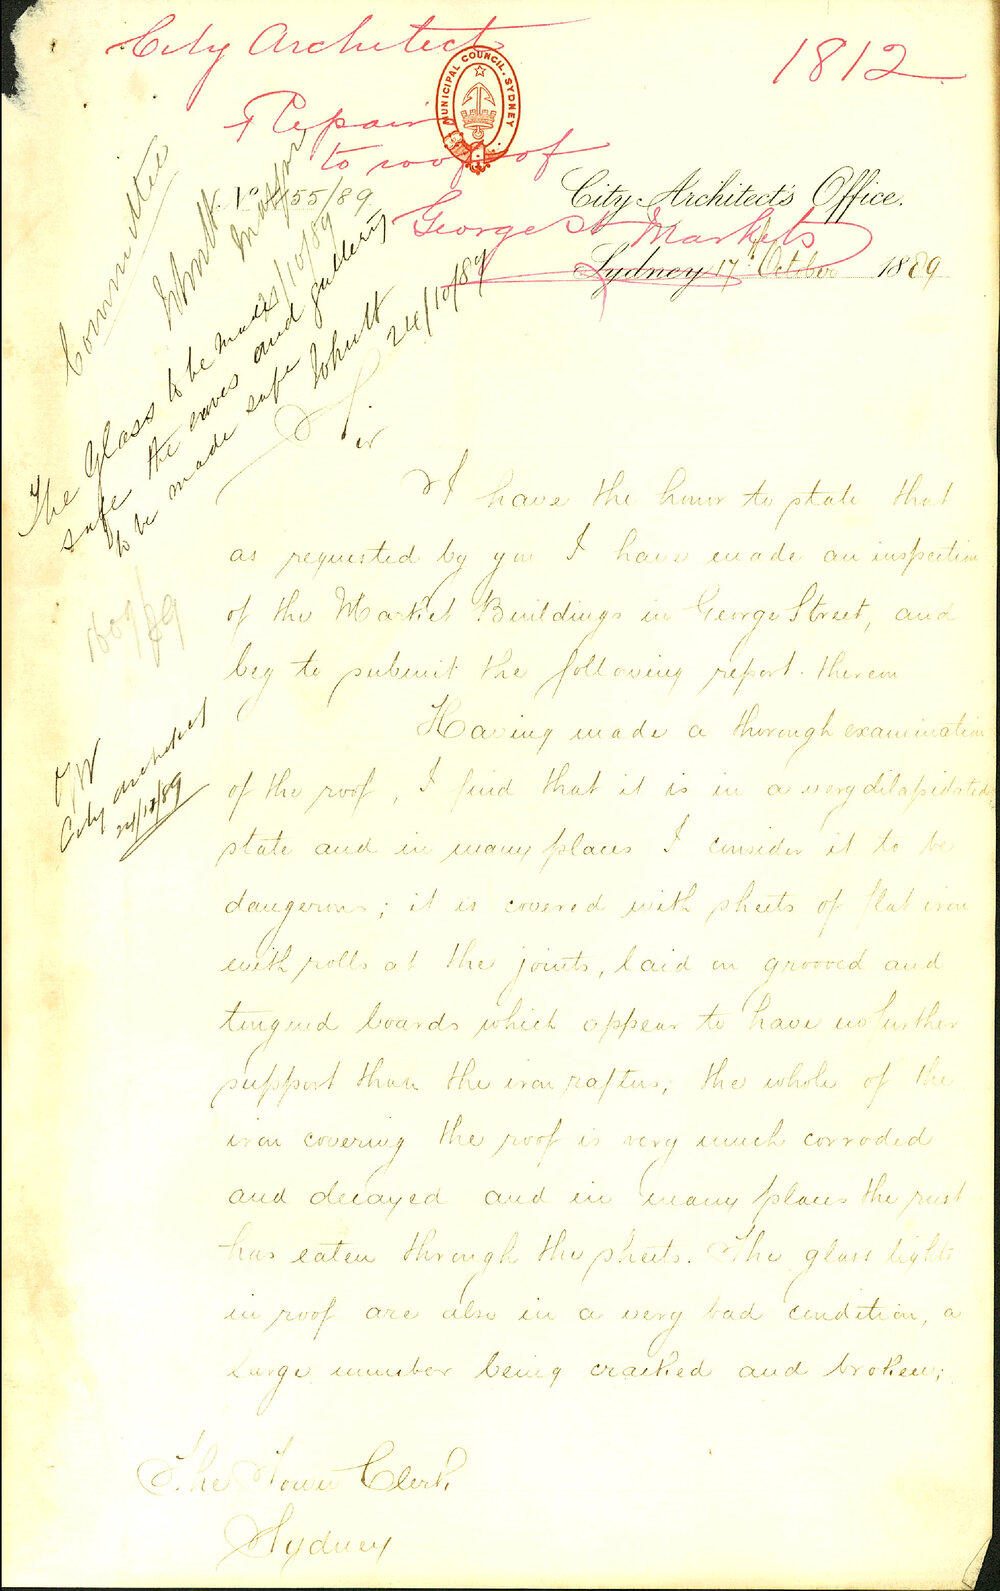 City Architect
1812
Repair
to roof of
George St Markets
MUNICIPAL COUNCIL, SYDNEY
No 155/89
City Architect's Office.
Sydney 17th October 1889
Committee
Mayor
/10/89
The Glass to be made
safe the eaves and guttering
to be made safe
24/10/89
1609/89
City Architect
24/10/89
Sir
I have the honor to state that
as requested by you I have made an inspection
of the Market Buildings in George Street, and
beg to submit the following report thereon
Having made a thorough examination
of the roof, I find that it is in a very dilapidated
state and in many places I consider it to be
dangerous; it is covered with sheets of flat iron
with rolls at the joints, laid on grooved and
tongued boards which appear to have no further
support than the iron rafters; the whole of the
iron covering the roof is very much corroded
and decayed and in many places the rust
has eaten through the sheets. The glass lights
in roof are also in a very bad condition, a
large number being cracked and broken;
The Town Clerk,
Sydney